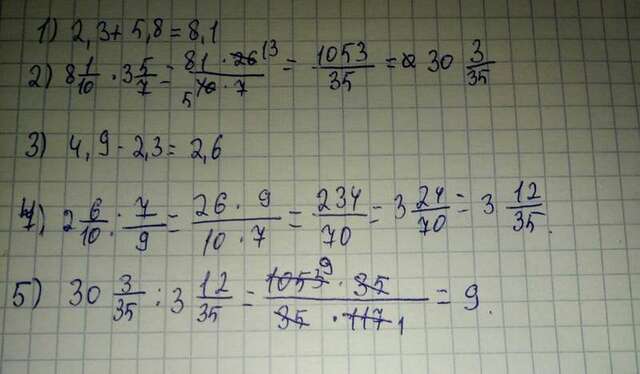 1) 2,3 + 5,8 = 8,1
2) 8 1/10 · 3 5/7 = 81 · 26 13 / 5 10 · 7 = 1053/35 = 30 3/35
3) 4,9 - 2,3 = 2,6
4) 2 6/10 : 7/9 = 26 · 9 / 10 · 7 = 234/70 = 3 24/70 = 3 12/35.
5) 30 3/35 : 3 12/35 = 1053 9 · 35 / 35 · 117 1 = 9.